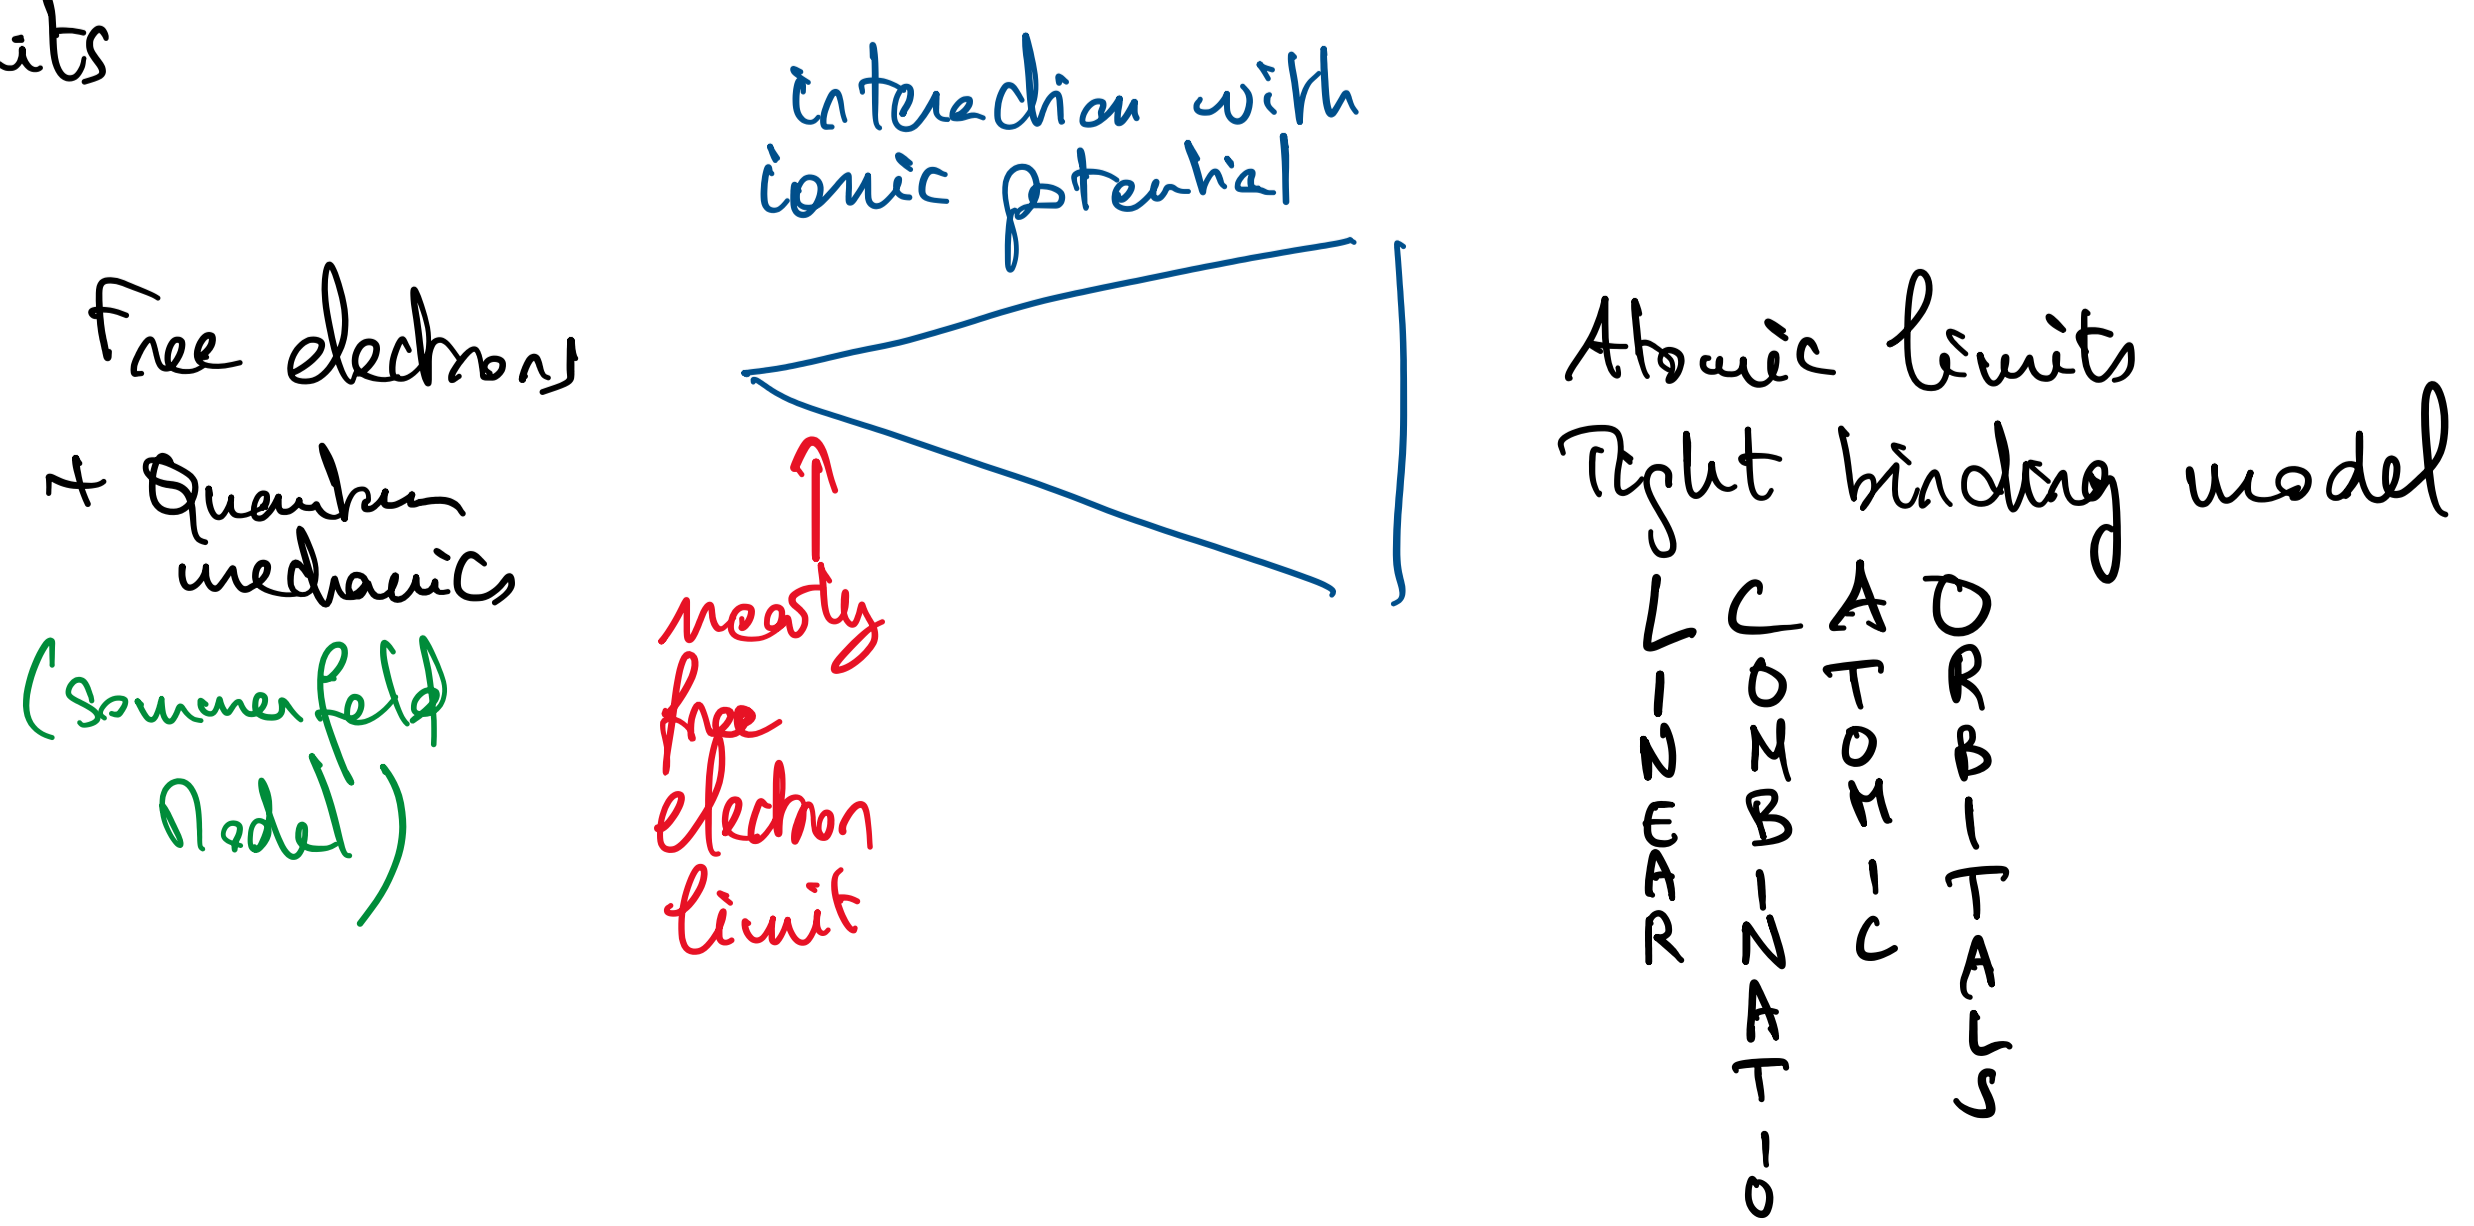 its
interaction with
ionic potential
Free electrons
+ Quantum
mechanics
(Sommerfeld
Model)
nearly
free
electron
limit
Atomic limits
Tight binding model
LINEAR
COMBINATIO
ATOMIC
ORBITALS